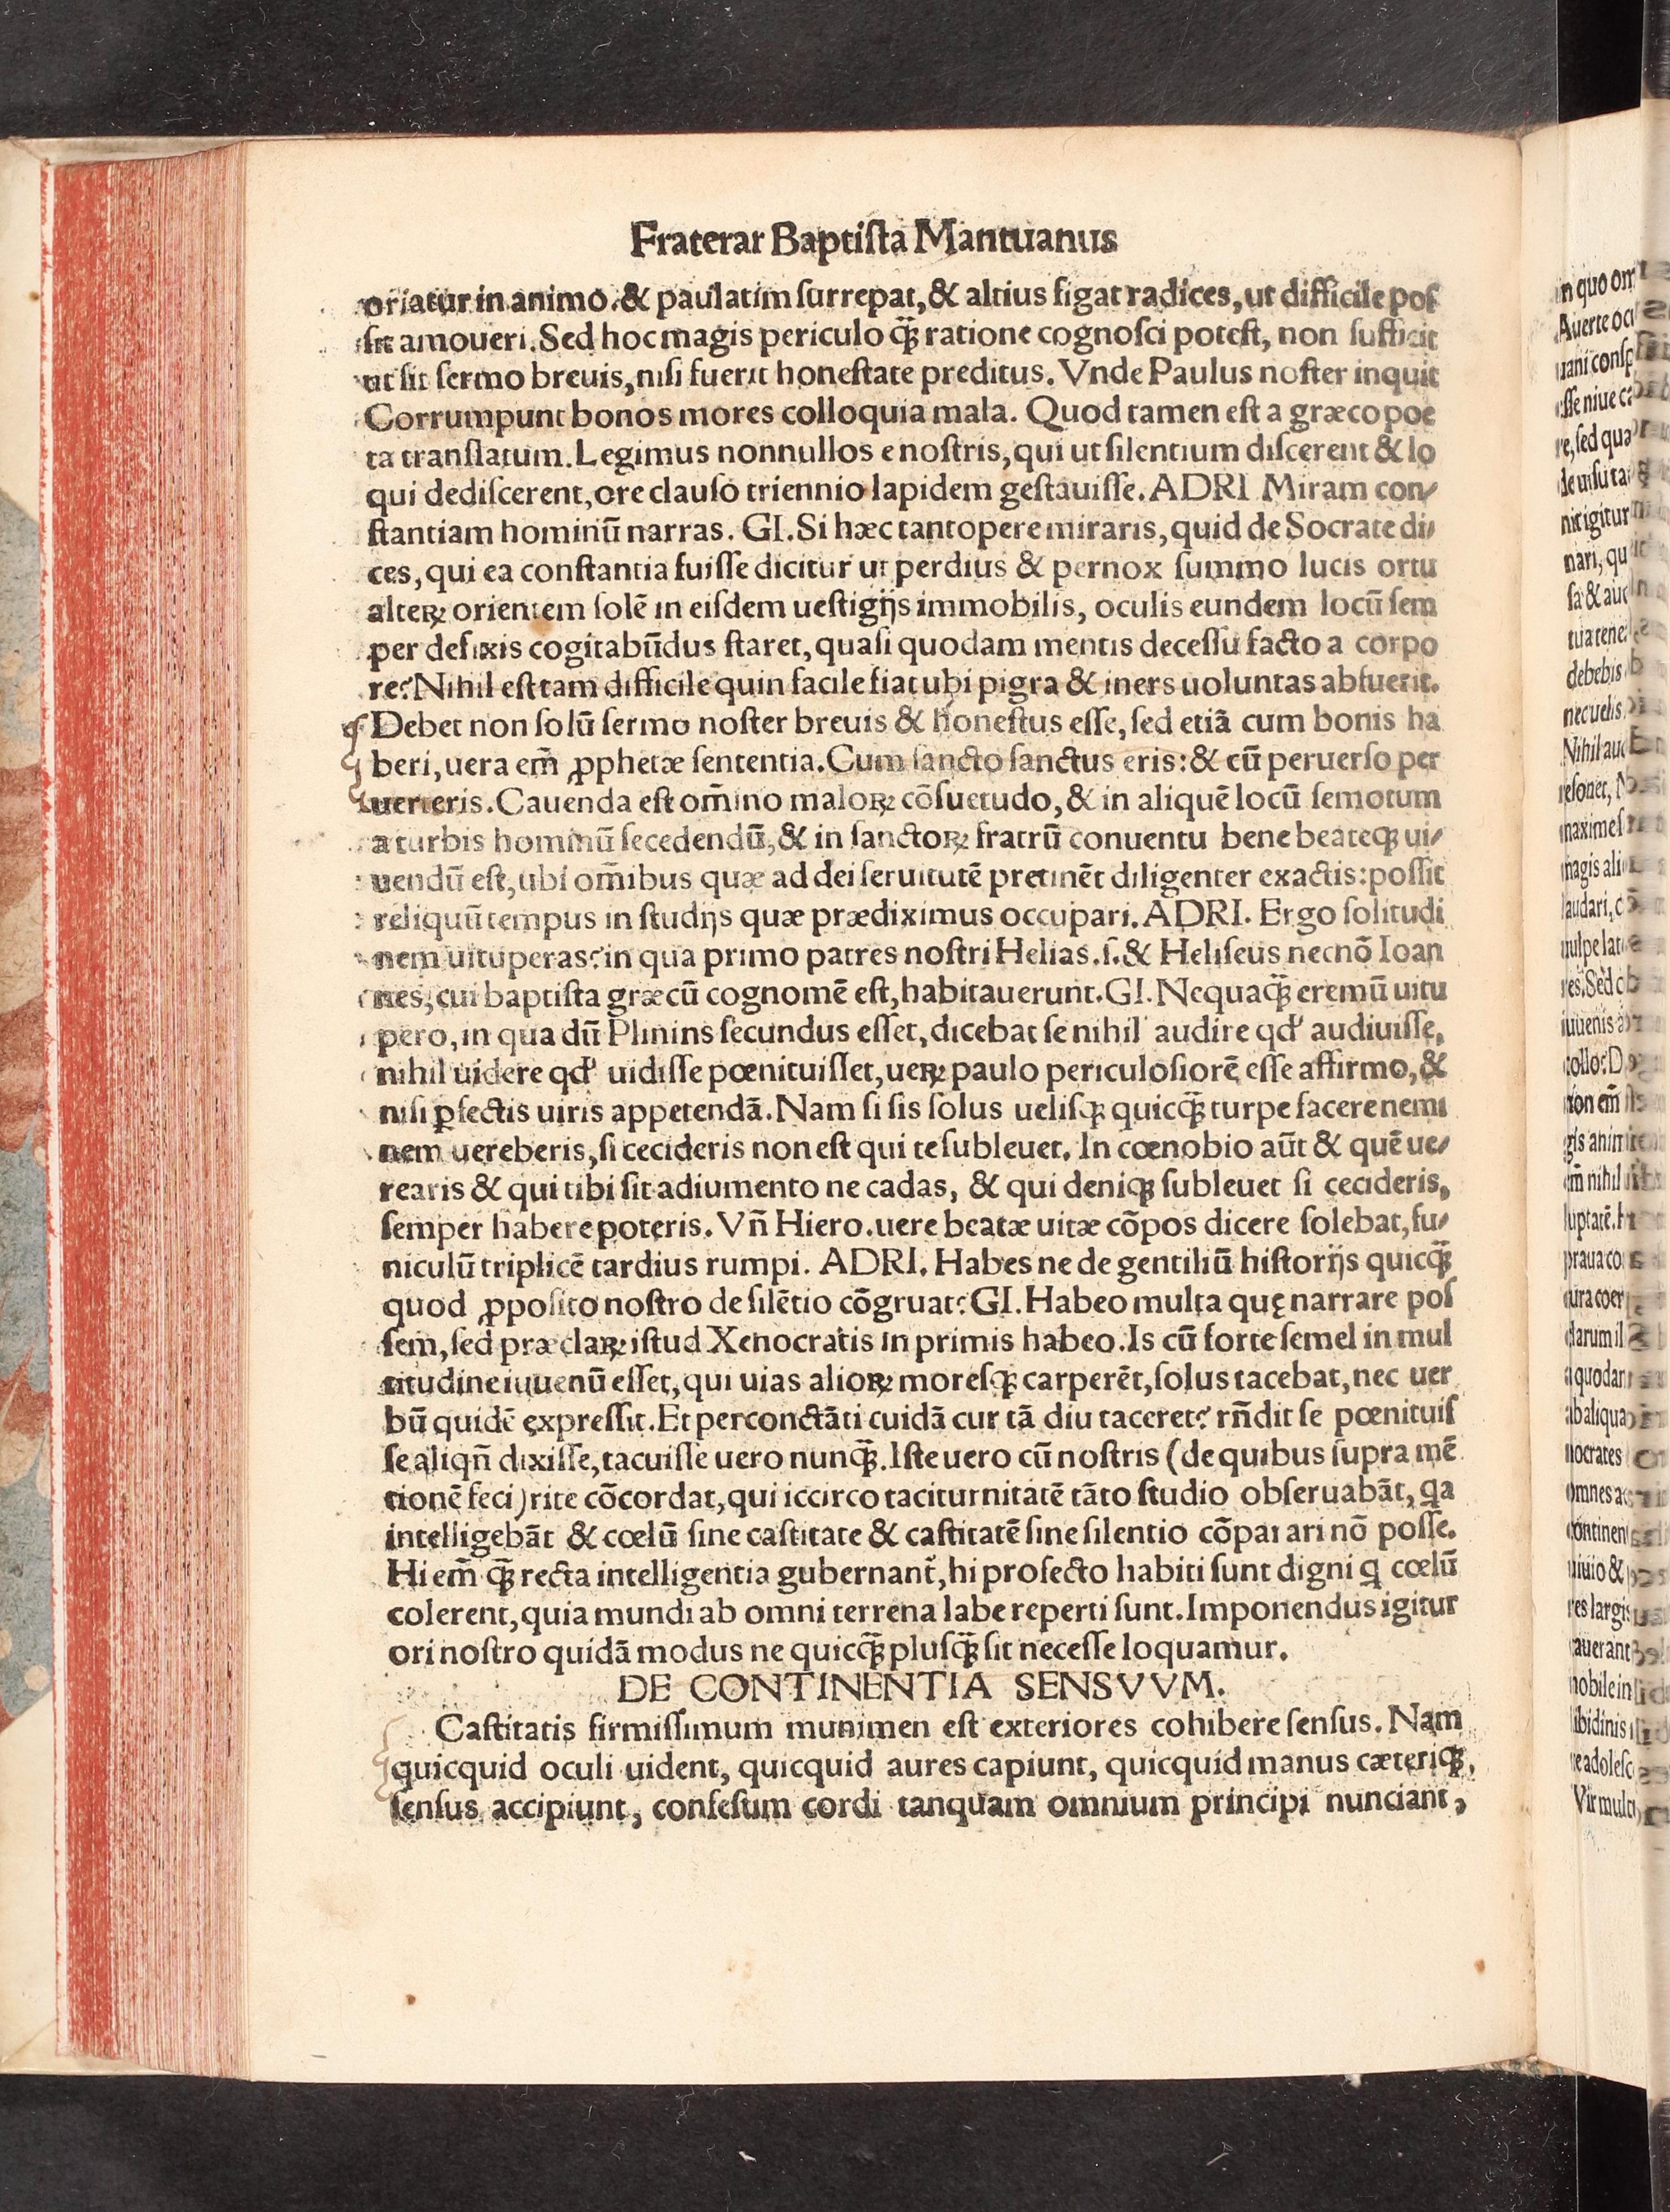 Fraterar Baptiſta Mantuanus
oriatur in animo & paulatim ſurrepat, & altius figat radices, ut difficile poſ
ſit amoueri. Sed hoc magis periculo q̃ ratione cognoſci poteſt, non ſufficit
ut ſit ſermo breuis, niſi fuerit honeſtate preditus. Vnde Paulus noſter inquit
Corrumpunt bonos mores colloquia mala. Quod tamen eſt a græco poe
ta tranſlatum. Legimus nonnullos e noſtris, qui ut ſilentium diſcerent & lo
qui dediſcerent, ore clauſo triennio lapidem geſtauiſſe. ADRI Miram con⸗
ſtantiam hominū narras. GI. Si hæc tantopere miraris, quid de Socrate di⸗
ces, qui ea conſtantia fuiſſe dicitur ut perdius & pernox ſummo lucis ortu
alteꝝ orientem ſolē in eiſdem ueſtigijs immobilis, oculis eundem locū ſem
per defixis cogitabūdus ſtaret, quaſi quodam mentis deceſſu facto a corpo
re? Nihil eſt tam difficile quin facile fiat ubi pigra & iners uoluntas abfuerit.
Debet non ſolū ſermo noſter breuis & honeſtus eſſe, ſed etiā cum bonis ha
beri, uera em̄ ꝓphetæ ſententia. Cum ſancto ſanctus eris: & cū peruerſo per
uerteris. Cauenda eſt om̄ino maloꝝ cōſuetudo, & in aliquē locū ſemotum
a turbis hominū ſecedendū, & in ſanctoꝝ fratrū conuentu bene beateqꝫ ui⸗
uendū eſt, ubi om̄ibus quæ ad dei ſeruitutē pretinēt diligenter exactis: poſſit
reliquū tempus in ſtudijs quæ prædiximus occupari. ADRI. Ergo ſolitudi
nem uituperas? in qua primo patres noſtri Helias .ſ. & Heliſeus necnō Ioan
nes, cui baptiſta græcū cognomē eſt, habitauerunt. GI. Nequaq̃ eremū uitu
pero, in qua dū Plinins ſecundus eſſet, dicebat ſe nihil audire qd' audiuiſſe,
nihil uidere qd' uidiſſe pœnituiſſet, ueꝝ paulo periculoſiorē eſſe affirmo, &
niſi ꝑfectis uiris appetendā. Nam ſi ſis ſolus uelisqꝫ quicq̃ turpe facere nemi
nem uereberis, ſi cecideris non eſt qui te ſubleuet. In cœnobio aūt & quē ue⸗
rearis & qui tibi ſit adiumento ne cadas, & qui deniqꝫ ſubleuet ſi cecideris,
ſemper habere poteris. Vn̄ Hiero. uere beatæ uitæ cōpos dicere ſolebat, fu⸗
niculū triplicē tardius rumpi. ADRI. Habes ne de gentiliū hiſtorijs quicq̃
quod ꝓpoſito noſtro de ſilētio cōgruat? GI. Habeo multa quę narrare poſ
ſem, ſed præclaꝝ iſtud Xenocratis in primis habeo. Is cū forte ſemel in mul
titudine iuuenū eſſet, qui uias alioꝝ moresqꝫ carperēt, ſolus tacebat, nec uer
bū quidē expreſſit. Et perconctāti cuidā cur tā diu taceret? rn̄dit ſe pœnituiſ
ſe aliqn̄ dixiſſe, tacuiſſe uero nunq̃. Iſte uero cū noſtris (de quibus ſupra mē
tionē feci) rite cōcordat, qui iccirco taciturnitatē tāto ſtudio obſeruabāt, ꝗa
intelligebāt & cœlū ſine caſtitate & caſtitatē ſine ſilentio cōparari nō poſſe.
Hi em̄ q̃ recta intelligentia gubernant̃, hi profecto habiti ſunt digni ꝗ cœlū
colerent, quia mundi ab omni terrena labe reperti ſunt. Imponendus igitur
ori noſtro quidā modus ne quicq̃ pluſq̃ ſit neceſſe loquamur.
DE CONTINENTIA SENSVVM.
Caſtitatis firmiſſimum munimen eſt exteriores cohibere ſenſus. Nam
quicquid oculi uident, quicquid aures capiunt, quicquid manus cæteriqꝫ,
ſenſus accipiunt, confeſum cordi tanquam omnium principi nunciant,